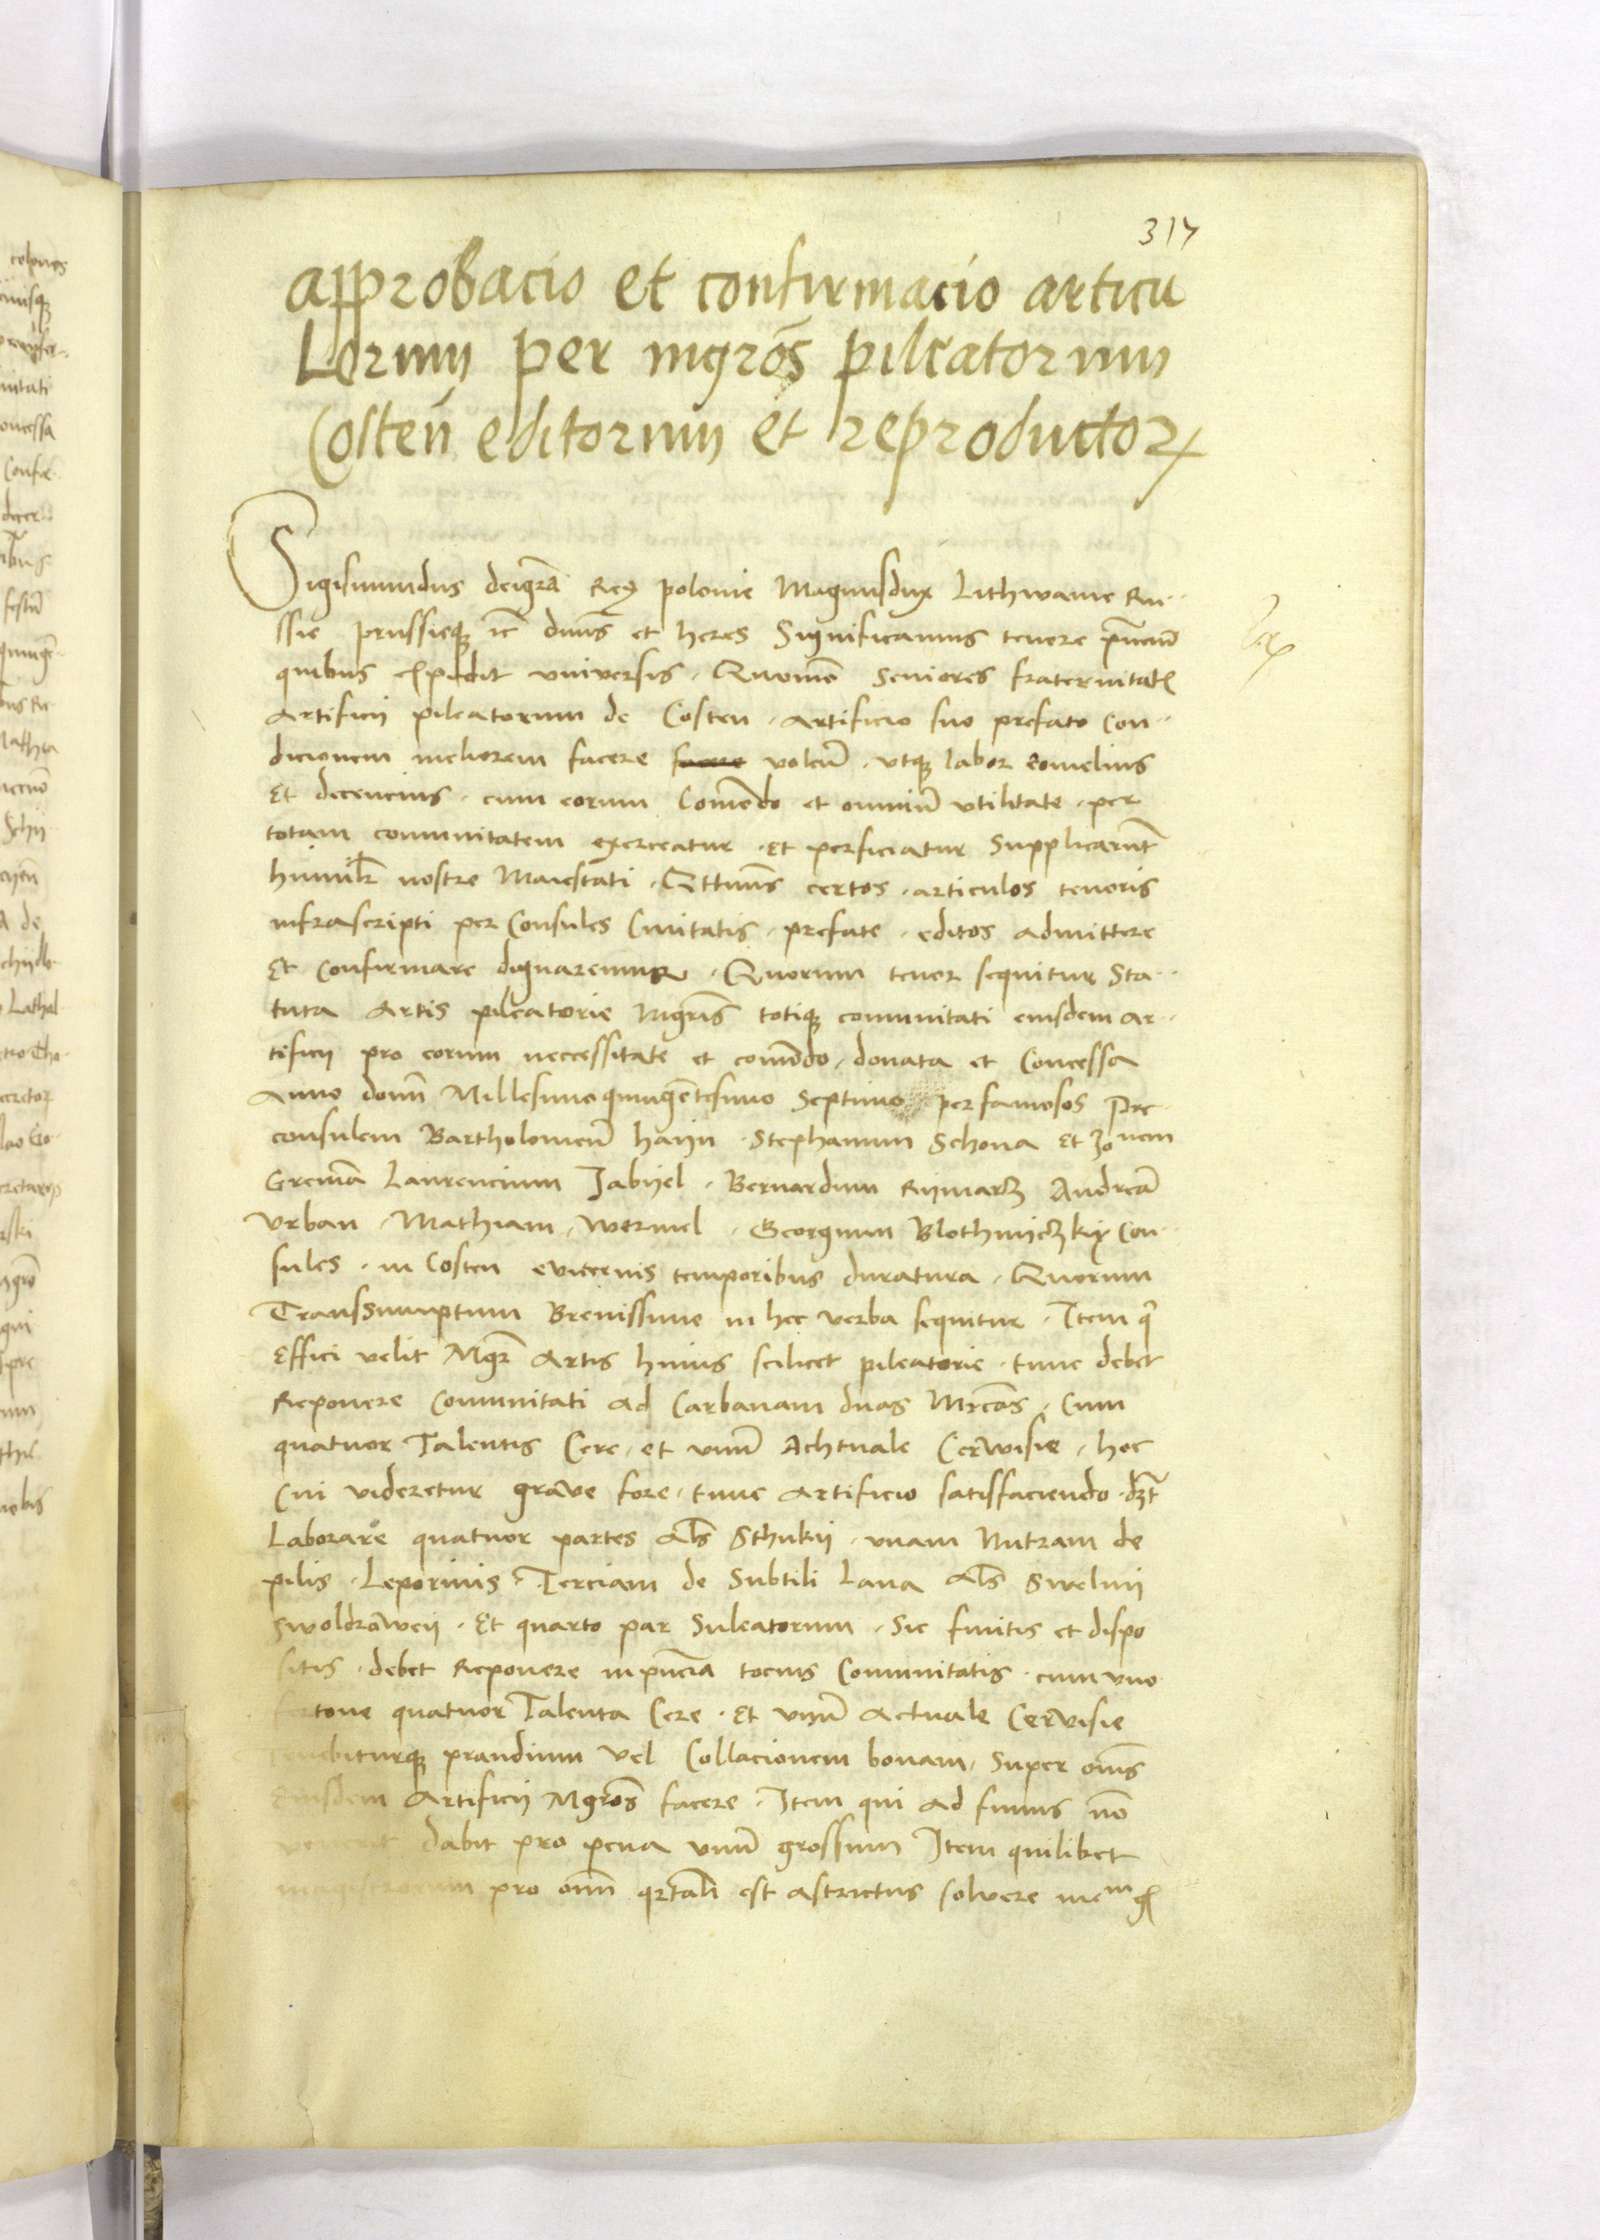 317
approbacio et confirmacio articu
Lorum per mgros̄ pileatorum
Costeñ editorum et reproductorꝝ
Sigismundus deigrā Rex polonie Magnusdux Lithwanie Ru-
ssie prussieqꝫ ꝛc̄ dnūs et heres Significamus tenore pn̄ciū
quibus expedit vniversis. Quomō Seniores fraternitatꝭ
Artificii pileatorum de Costen. Artificio suo prefato Con-
dicionem meliorem facere facere volen̄. vtqꝫ labor eomelius
Et decencius. cum eorum Com̄odo et omniū vtilitate. per
totam comunitatem exerceatur. et perficiatur Supplicarūt
humilr̄ nostre Maiestati. Qttnus̄ certos. articulos tenoris
infrascripti per Consules Civitatis. prefate. editos admittere
Et Confirmare dignaremur. Quorum tenor sequitur Sta-
tuta Artis pileatorie Mgris̄ totiqꝫ comunitati eiusdem Ar-
tificii pro eorum neccessitate et com̄odo. donata et Concessa
Anno domī Millesimoquingētesimo Septimo per famosos Pre
consulem Bartholomeū hayn. Stephanum Schona et Joīnem
Gremā Laurencium Jabijel. Bernardum Rymarz Andreā
Vrban. Mathiam. Wermel. Georgium Blothniczky Con-
sules. in Costen eviternis temporibus duratura. Quorum
Transsumptum Brevissime in hec verba sequitur. Item qͥ
Effici velit Mgr̄ Artis huius scilicet pileatorie. tunc debet
Reponere Comunitati ad Carbanam duas Mrcās. Cum
quatuor Talentis Cere. et vnū Achtuale Cerwisie. hoc
Cui videretur grave fore. tunc Artificio satisfaciendo. dꝫt
Laborare quatuor partes als̄ Sthuky. vnam Mutzam de
pilis. Leporinis. Terciam de Subtili Lana als̄ Swelny
Swoldrāweij. Et quarto par Sulcatorum. Sic finitis et dispo
sitis. debet Reponere inpn̄cia tocius Comunitatis. cum vno
tone quatuor Talenta Cere. Et vnū Actuale Cervisie
Tenebiturqꝫ prandium vel Collacionem bonam. Super om̄s
Eiusdem Artificii Mgros̄ facere. Item qui ad funus nō
venerit dabit pro pena vnū grossum Item quilibet
magistrorum pro om̄ qrtali est astrictus solvere